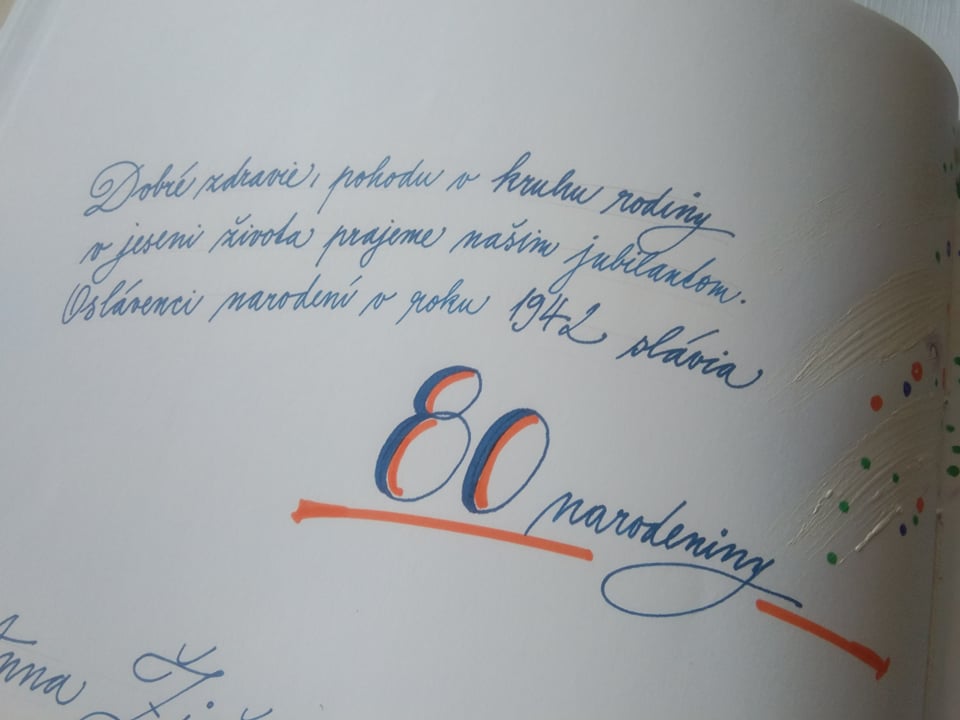 Dobré zdravie, pohodu v kruhu rodiny
v jeseni života prajeme našim jubilantom.
Oslávenci narodení v roku 1942 slávia
80 narodeniny